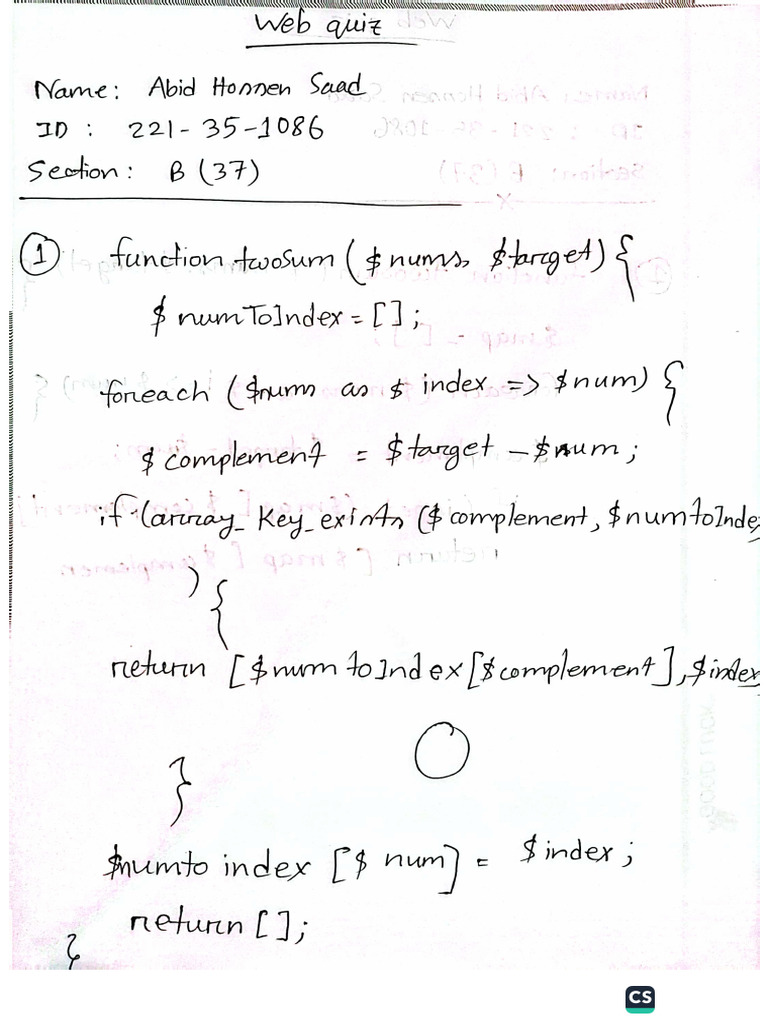 Web quiz
Name: Abid Honnen Saad
ID : 221-35-1086
Section: B (37)
1 function twosum ($nums, $target) {
$numToIndex = [];
foreach ($nums as $index => $num) {
$complement = $target - $num;
if (array_Key_exists ($complement, $numtoInde
) {
return [$numtoIndex[$complement], $index
}
$numto index [$num] = $index;
return [];
}
CS